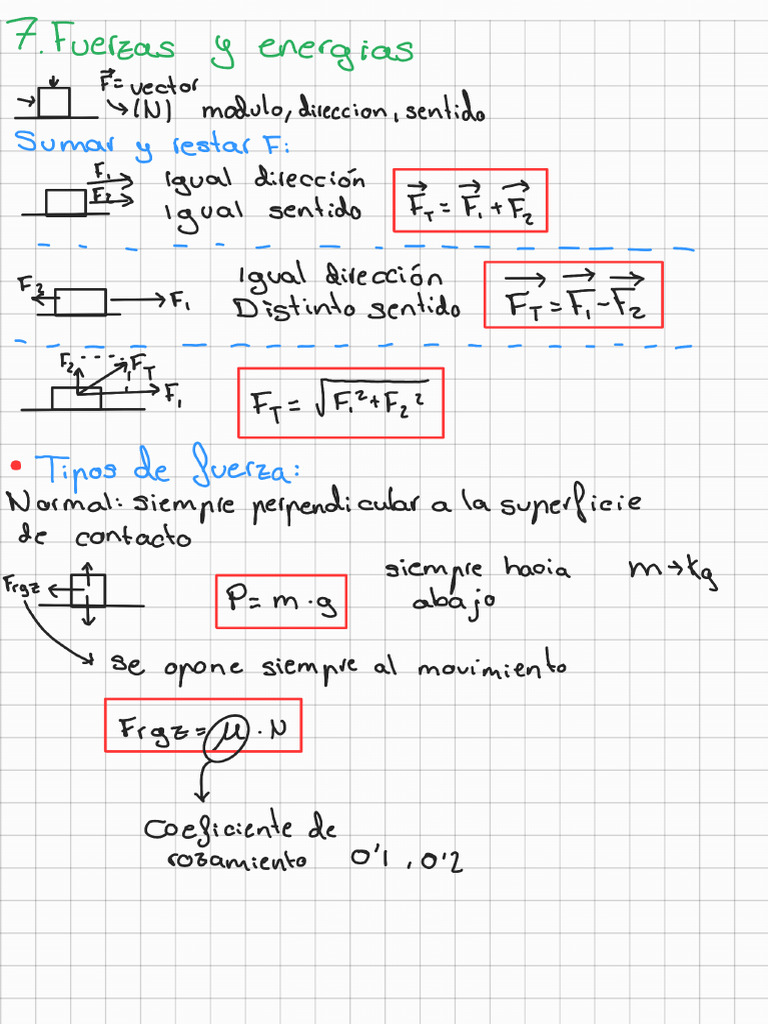 7. Fuerzas y energias
F⃗ = vector
↳(N) modulo, direccion, sentido
Sumar y restar F:
F₁ Igual dirección
F₂ Igual sentido
F⃗_T = F⃗₁ + F⃗₂
F₂ F₁
Igual dirección
Distinto sentido
F⃗_T = F⃗₁ - F⃗₂
F₂ F_T F₁
F_T = √(F₁² + F₂²)
• Tipos de fuerza:
Normal: siempre perpendicular a la superficie
de contacto
Frgz
P = m · g
siempre hacia
abajo
m → kg
se opone siempre al movimiento
Frgz = μ · N
Coeficiente de
rozamiento 0'1, 0'2